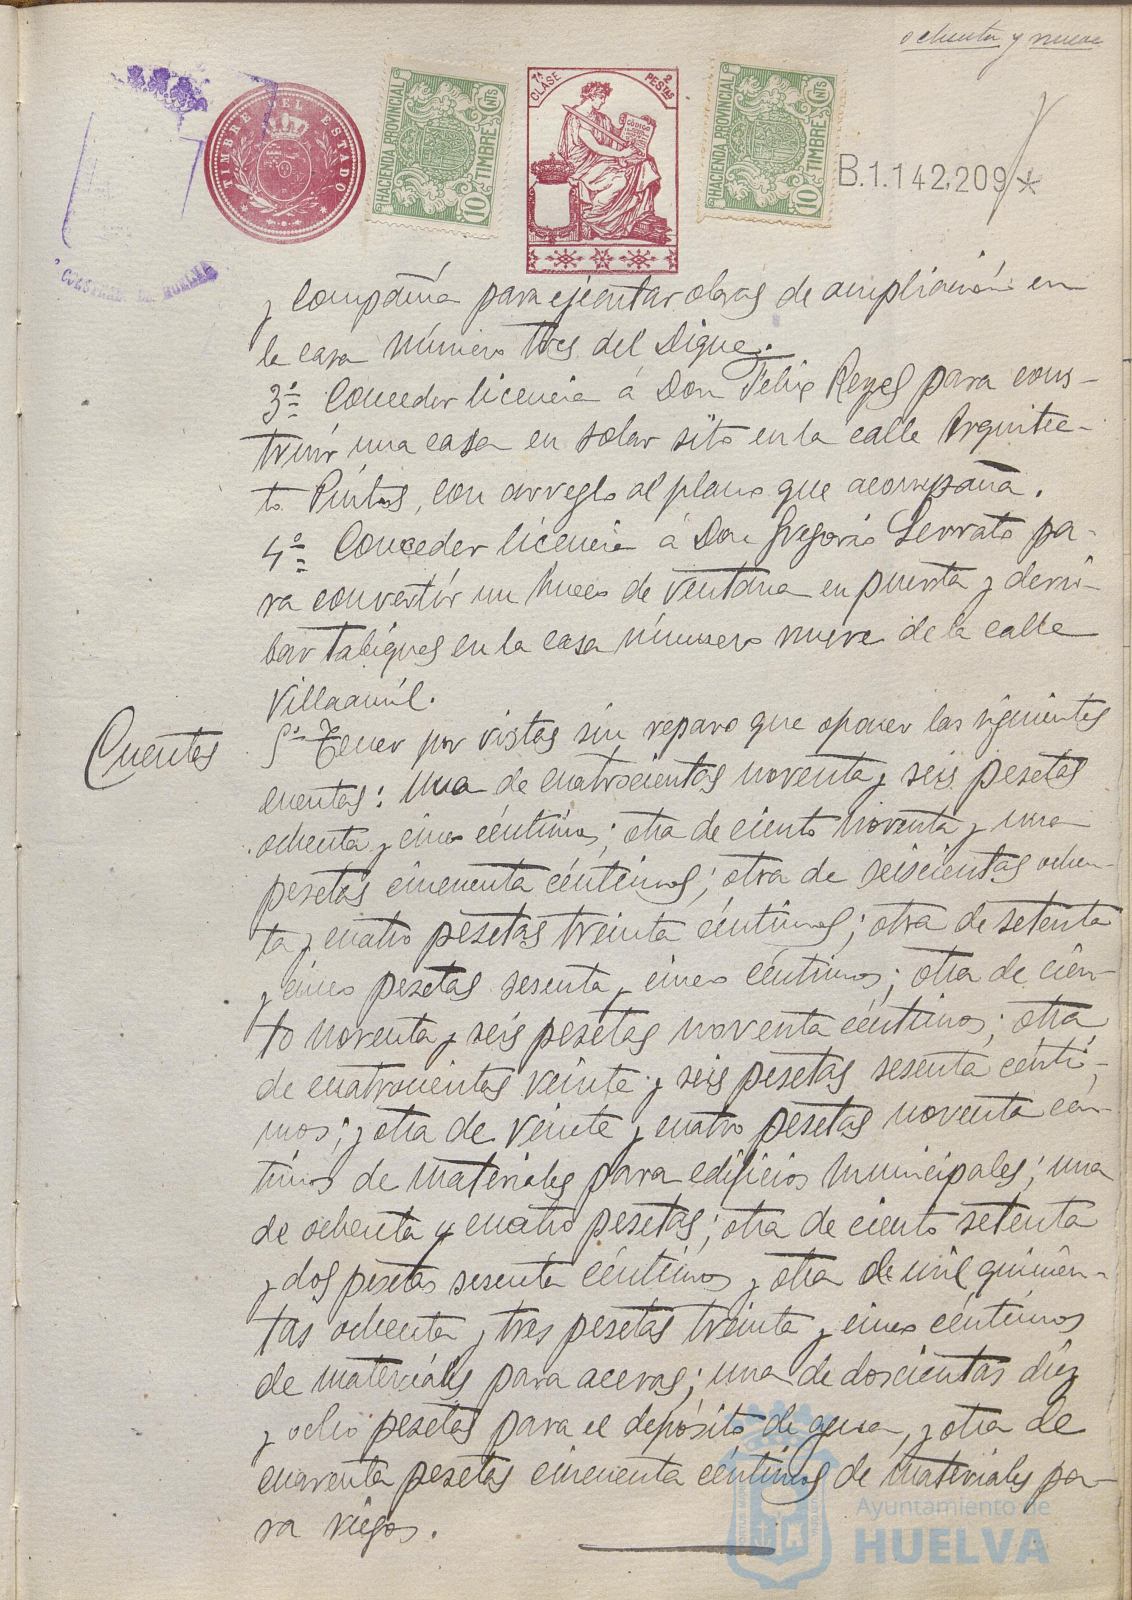 ochenta y nueve
TIMBRE DEL ESTADO
HACIENDA PROVINCIAL
10 CNTS
TIMBRE
7ª CLASE
2 PESTAS
CÓDIGO
HACIENDA PROVINCIAL
10 CNTS
TIMBRE
B.1.142,209 *
DE HUELVA
y Compañía para ejecutar obras de ampliación en
la casa número tres del Dique.
3º Conceder licencia á Don Felix Reyes para cons-
truir una casa en solar sito en la calle Arquitec-
to Pintos, con arreglo al plano que acompaña.
4º Conceder licencia á Don Gregorio Serrato pa-
ra convertir un hueco de ventana en puerta y derri-
bar tabiques en la casa número nueve de la calle
Villaamil.
Cuentas
5º Tener por vistas sin reparo que oponer las siguientes
cuentas: una de cuatrocientas noventa y seis pesetas
ochenta y cinco céntimos; otra de ciento noventa y una
pesetas cincuenta céntimos; otra de seiscientas ochen-
ta y cuatro pesetas treinta céntimos; otra de setenta
y cinco pesetas sesenta y cinco céntimos; otra de cien-
to noventa y seis pesetas noventa céntimos; otra
de cuatrocientas veinte y seis pesetas sesenta cénti-
mos; y otra de veinte y cuatro pesetas noventa cén-
timos de materiales para edificios municipales; una
de ochenta y cuatro pesetas; otra de ciento setenta
y dos pesetas sesenta céntimos y otra de mil quinien-
tas ochenta y tres pesetas treinta y cinco céntimos
de materiales para aceras; una de doscientas diez
y ocho pesetas para el depósito de agua, y otra de
cuarenta pesetas cincuenta céntimos de materiales pa-
ra riegos.
Ayuntamiento de
HUELVA